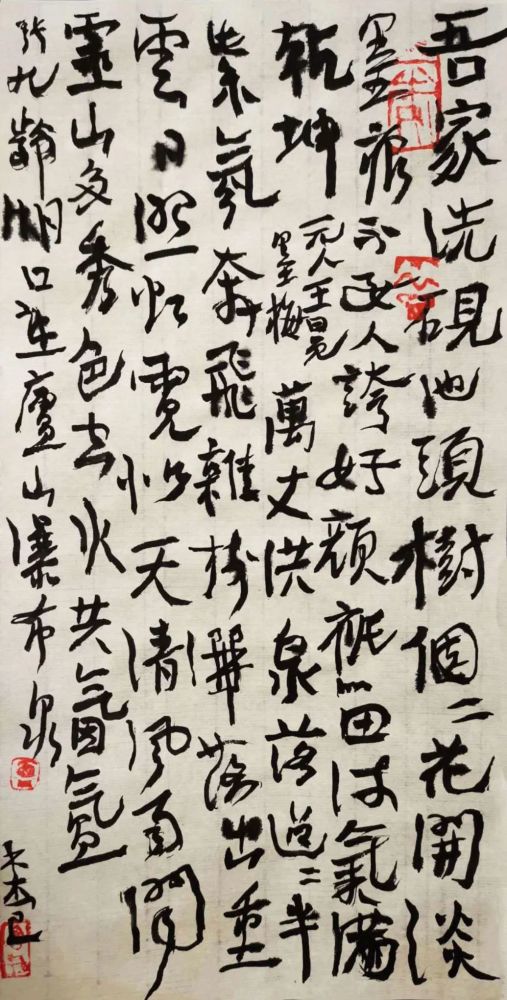 吾家洗硯池頭樹個二花開淡
墨痕不要人誇好顏祗留清氣滿
乾坤
元人王冕
墨梅
萬丈洪泉落迢二半
紫氛奔飛雜樹灑落出重
雲日照一虹霓似天清風雨聞
靈山多秀色空水共氤氳
張九齡湖口望廬山瀑布泉